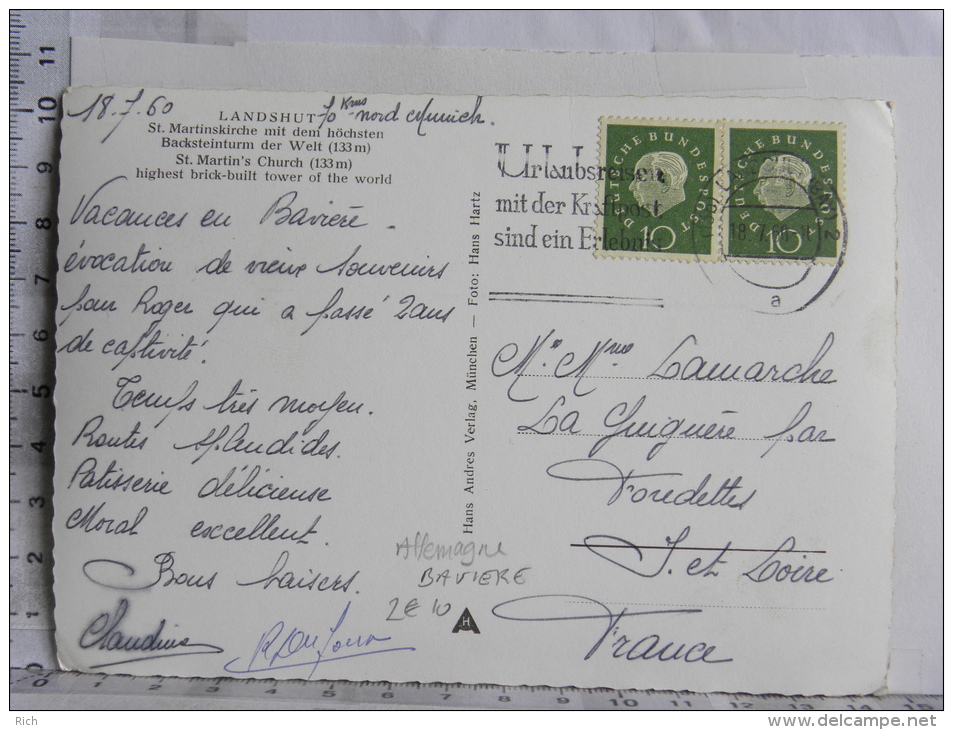 18.7.60
LANDSHUT 70 Kms nord Munich.
St. Martinskirche mit dem höchsten
Backsteinturm der Welt (133 m)
St. Martin's Church (133 m)
highest brick-built tower of the world
Vacances en Bavière.
évocation de vieux souvenirs
pour Roger qui a passé 2 ans
de captivité.
Temps très moyen.
Routes splendides.
Patisserie délicieuse
Moral excellent.
Bons baisers.
Claudine
R Dufour
Hans Andres Verlag, München — Foto: Hans Hartz
Allemagne
BAVIERE
2€10
A H
Urlaubsreisen
mit der Kraftpost
sind ein Erlebnis
DEUTSCHE BUNDESPOST
10
DEUTSCHE BUNDESPOST
10
18.7.60
2
a
Mr. Mme Lamarche
La Guiguère par
Fondettes
I. et Loire
France
11
10
9
8
7
6
5
4
3
2
1
0
0 1 2 3 4 5 6 7 8 9 10 11 12 13 14 15
Rich
www.delcampe.net